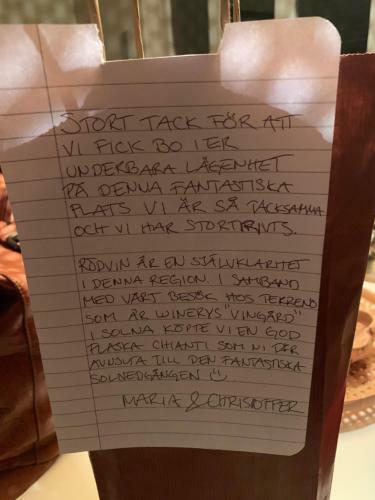 STORT TACK FÖR ATT
VI FICK BO I ER
UNDERBARA LÄGENHET
PÅ DENNA FANTASTISKA
PLATS VI ÄR SÅ TACKSAMMA
OCH VI HAR STORTRIVTS.
RÖDVIN ÄR EN SJÄLVKLARHET
I DENNA REGION. I SAMBAND
MED VÅRT BESÖK HOS TERRENO
SOM ÄR WINERYS "VINGÅRD"
I SOLNA KÖPTE VI EN GOD
FLASKA CHIANTI SOM NI FÅR
AVNJUTA TILL DEN FANTASTISKA
SOLNEDGÅNGEN ☺
MARIA & CHRISTOFFER